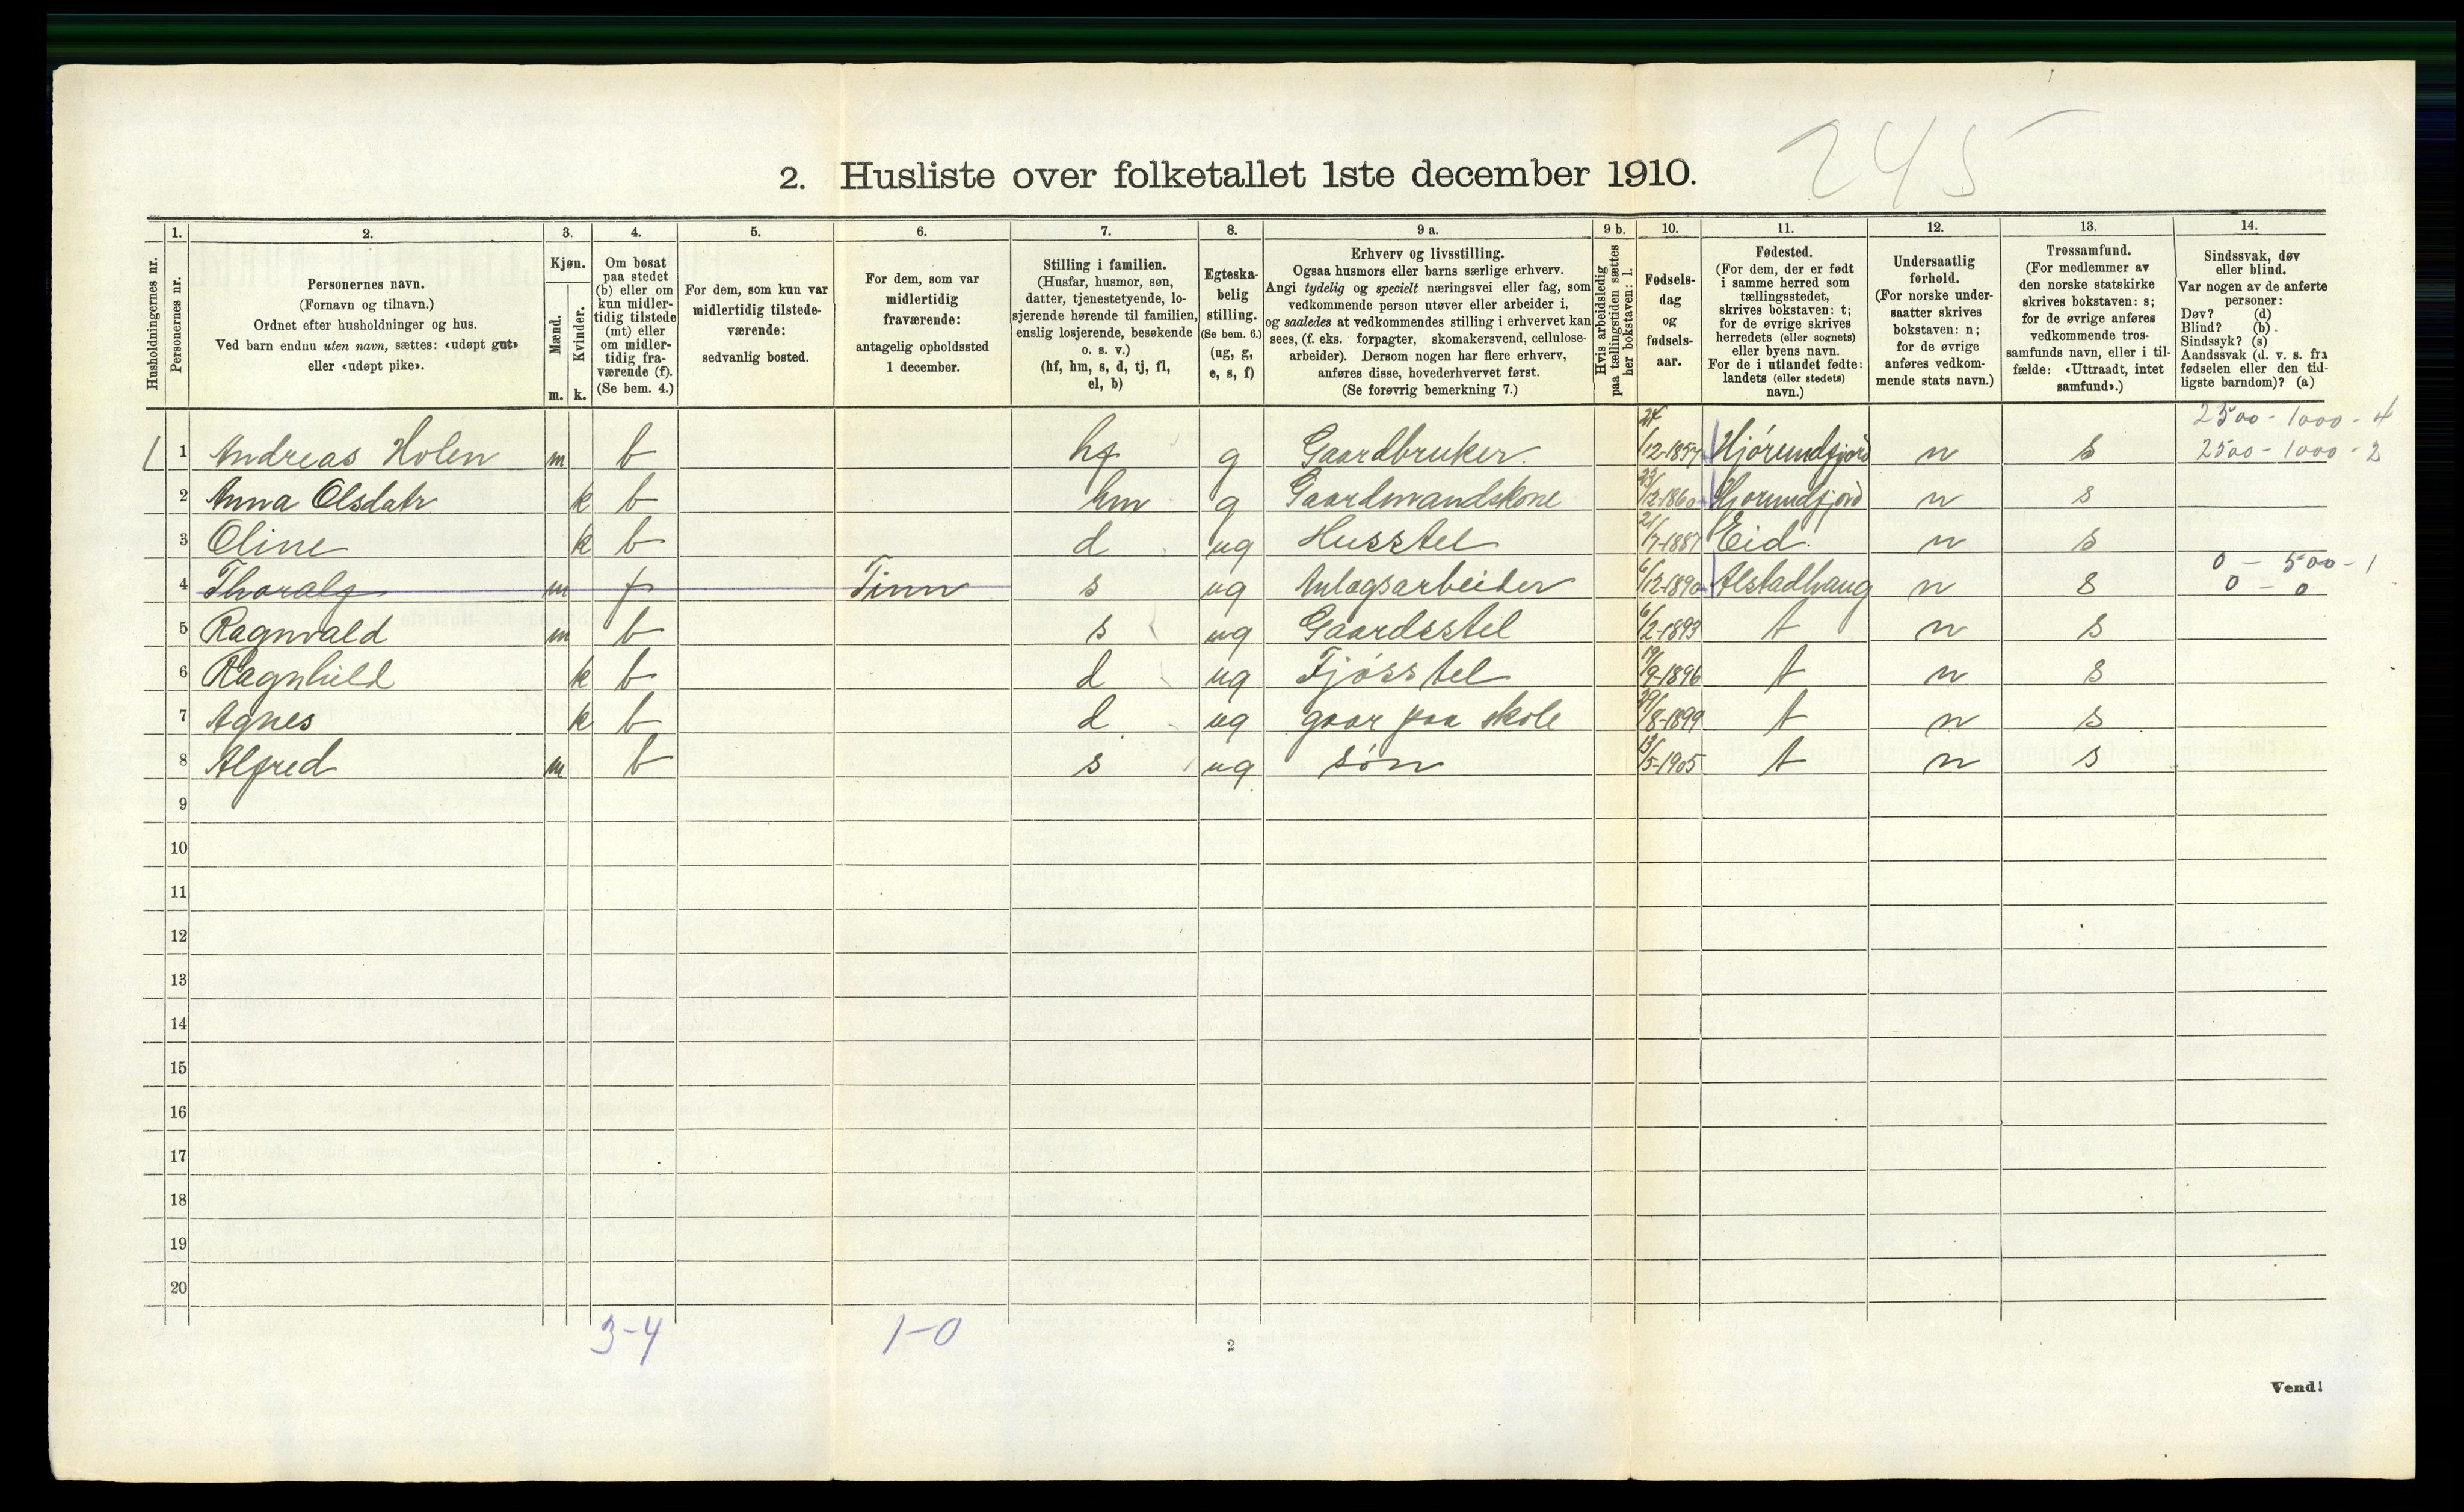 245
2. Husliste over folketallet 1ste december 1910.
Husholdningernes nr.
1.
Personernes nr.
2.
Personernes navn.
(Fornavn og tilnavn.)
Ordnet efter husholdninger og hus.
Ved barn endnu uten navn, sættes: «udøpt gut»
eller «udøpt pike».
3.
Kjøn.
Mænd.
Kvinder.
m. k.
4.
Om bosat
paa stedet
(b) eller om
kun midler-
tidig tilstede
(mt) eller
om midler-
tidig fra-
værende (f).
(Se bem. 4.)
5.
For dem, som kun var
midlertidig tilstede-
værende:
sedvanlig bosted.
6.
For dem, som var
midlertidig
fraværende:
antagelig opholdssted
1 december.
7.
Stilling i familien.
(Husfar, husmor, søn,
datter, tjenestetyende, lo-
sjerende hørende til familien,
enslig losjerende, besøkende
o. s. v.)
(hf, hm, s, d, tj, fl,
el, b)
8.
Egteska-
belig
stilling.
(Se bem. 6.)
(ug, g,
e, s, f)
9 a.
Erhverv og livsstilling.
Ogsaa husmors eller barns særlige erhverv.
Angi tydelig og specielt næringsvei eller fag, som
vedkommende person utøver eller arbeider i,
og saaledes at vedkommendes stilling i erhvervet kan
sees, (f. eks. forpagter, skomakersvend, cellulose-
arbeider). Dersom nogen har flere erhverv,
anføres disse, hovederhvervet først.
(Se forøvrig bemerkning 7.)
9 b.
Hvis arbeidsledig
paa tællingstiden sættes
her bokstaven: l.
10.
Fødsels-
dag
og
fødsels-
aar.
11.
Fødested.
(For dem, der er født
i samme herred som
tællingsstedet,
skrives bokstaven: t;
for de øvrige skrives
herredets (eller sognets)
eller byens navn.
For de i utlandet fødte:
landets (eller stedets)
navn.)
12.
Undersaatlig
forhold.
(For norske under-
saatter skrives
bokstaven: n;
for de øvrige
anføres vedkom-
mende stats navn.)
13.
Trossamfund.
(For medlemmer av
den norske statskirke
skrives bokstaven: s;
for de øvrige anføres
vedkommende tros-
samfunds navn, eller i til-
fælde: «Uttraadt, intet
samfund».)
14.
Sindssvak, døv
eller blind.
Var nogen av de anførte
personer:
Døv? (d)
Blind? (b)
Sindssyk? (s)
Aandssvak (d. v. s. fra
fødselen eller den tid-
ligste barndom)? (a)
2500 - 1000 - 4
1 1 Andreas Holen m b hf g Gaardbruker 24/12-1857 Hjørundfjord n s 2500 - 1000 - 2
2 Anna Olsdatr k b hm g Gaardmandskone 23/12-1860 Hjorundfjord n s
3 Oline k b d ug Husstel 21/7-1887 Eid n s
0 - 500 - 1
4 Thoralf m f Tinn s ug Anlagsarbeider 6/12-1890 Alstadhaug n s 0 - 0
5 Ragnvald m b s ug Gaardsstel 6/2-1893 t n s
6 Ragnhild k b d ug Fjøsstel 19/9-1896 t n s
7 Agnes k b d ug gaar paa skole 29/8-1899 t n s
8 Alfred m b s ug søn 13/5-1905 t n s
9
10
11
12
13
14
15
16
17
18
19
20
3-4 1-0
2
Vend!